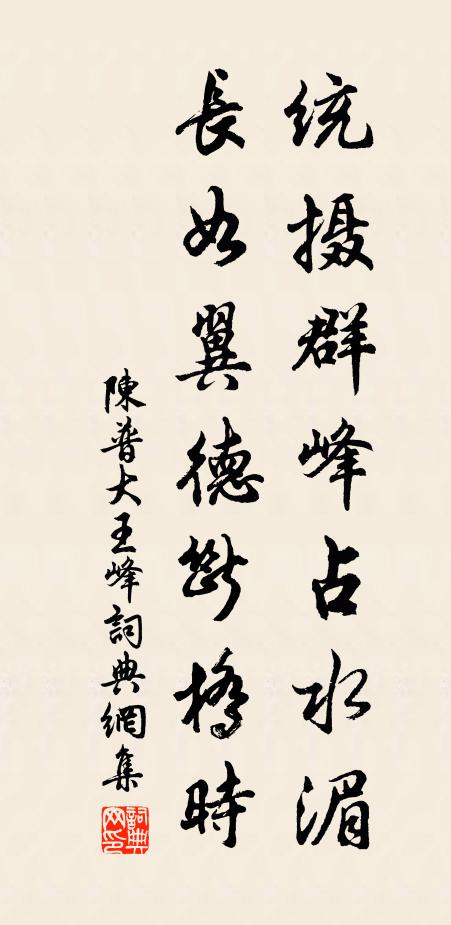 统摄群峰占水湄
長如翼德断橋時
陳普大王峰詞典網集
詞典网印